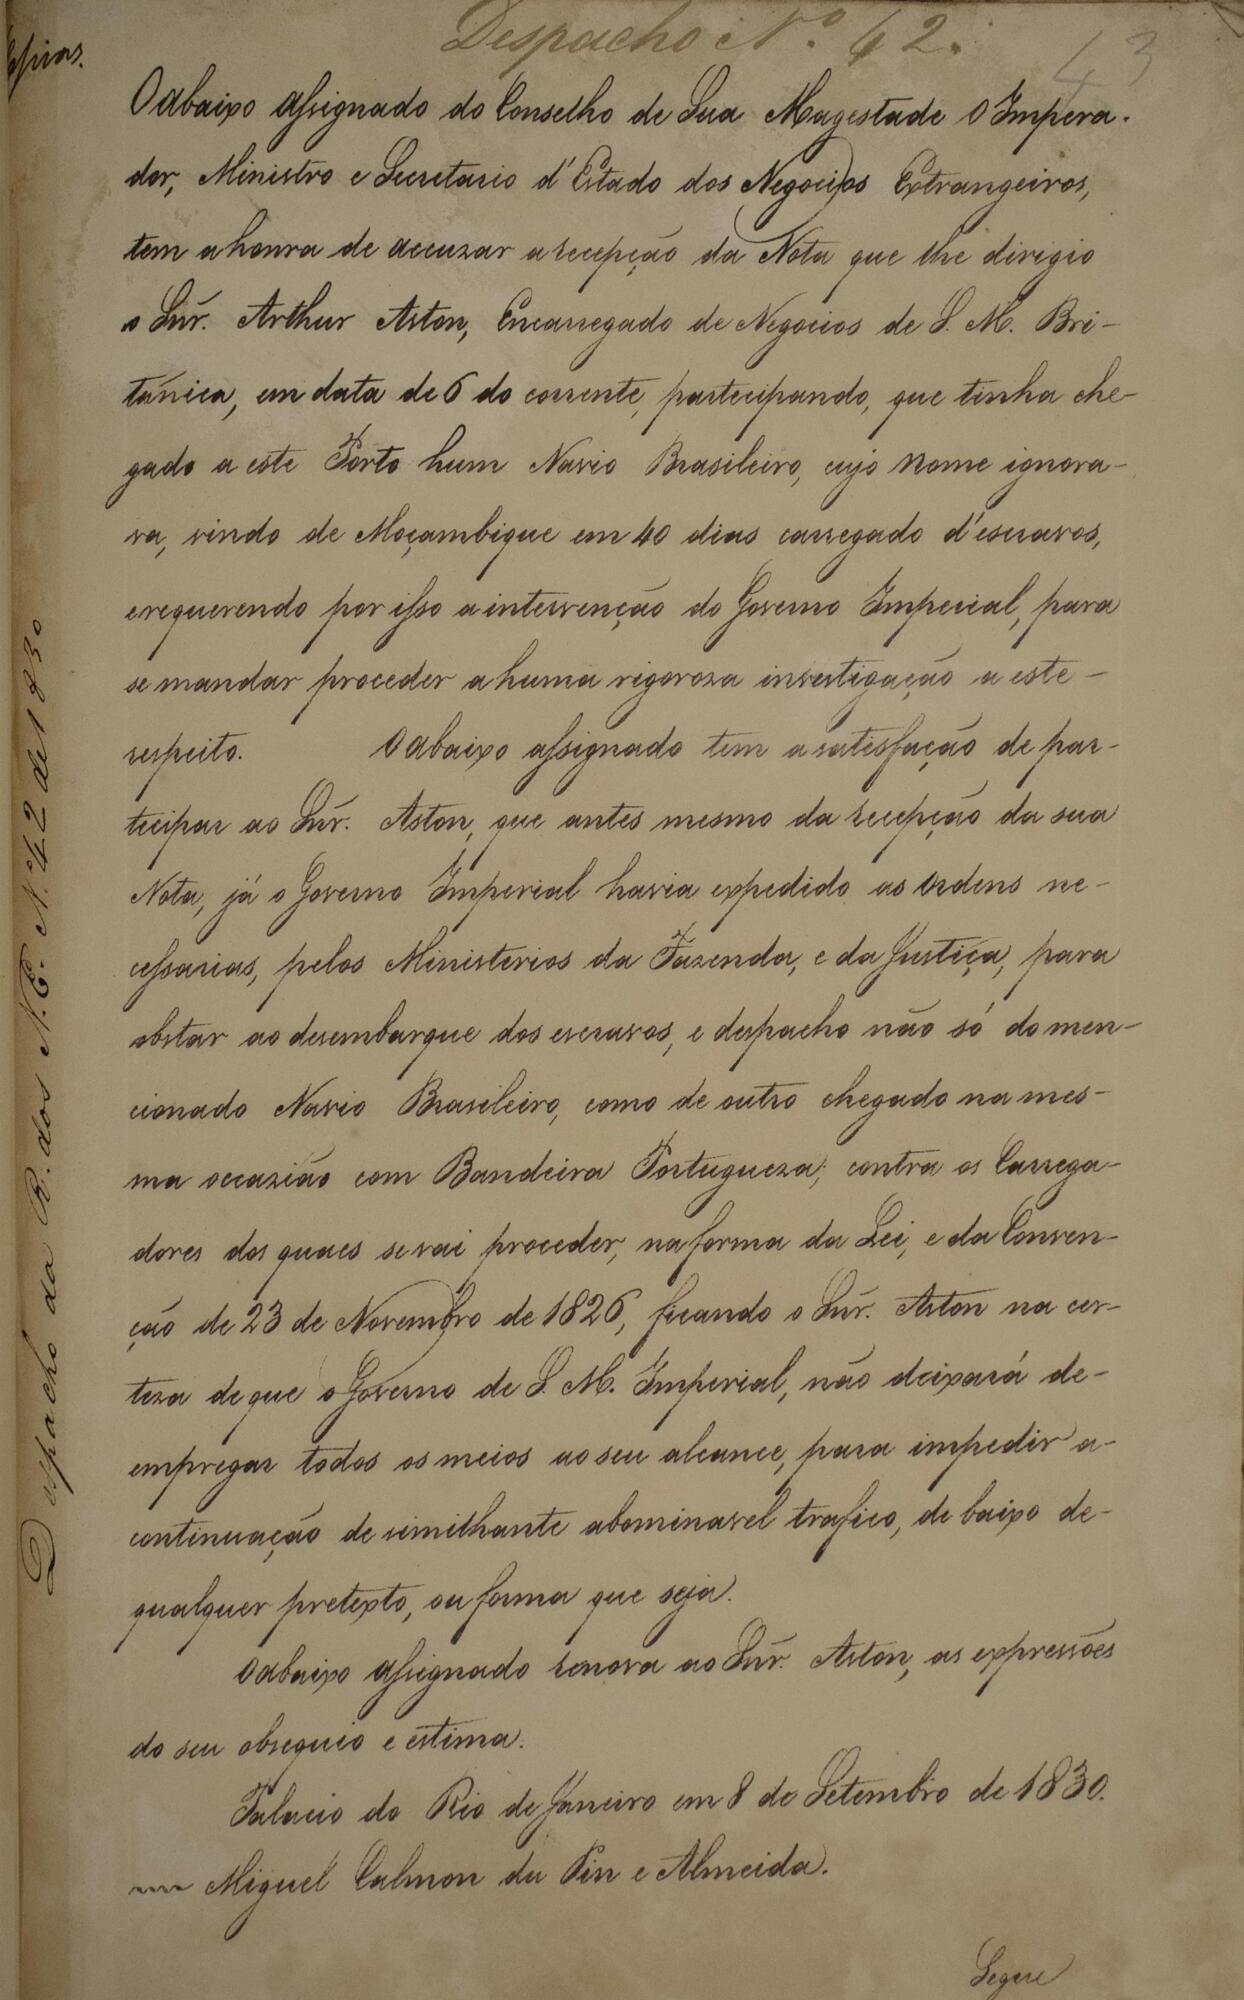 Despacho Nº. 42.
43
Copias.
O abaixo assignado do Conselho de Sua Magestade O Impera-
dor, Ministro e Secretario d'Estado dos Negocios Extrangeiros,
tem a honra de accuzar a recepção da Nota que lhe dirigio
o Snr. Arthur Aston, Encarregado de Negocios de S. M. Bri-
tánica, em data de 6 do corrente, partecipando, que tinha che-
gado a este Porto hum Navio Brasileiro, cujo nome ignora-
va, vindo de Moçambique em 40 dias carregado d'escravos,
e requerendo por isso a intervenção do Governo Imperial, para
se mandar proceder a huma rigoroza investigação a este-
respeito. O abaixo assignado tem a satisfação de par-
tecipar ao Snr. Aston, que antes mesmo da recepção da sua
Nota, já o Governo Imperial havia expedido as ordens ne-
cessarias, pelos Ministerios da Fazenda, e da Justiça, para
obstar ao desembarque dos escravos, e despacho não só do men-
cionado Navio Brasileiro, como de outro chegado na mes-
ma occazião com Bandeira Portugueza; contra os Carrega-
dores dos quaes se vai proceder, na forma da Lei, e da Conven-
ção de 23 de Novembro de 1826, ficando o Snr. Aston na cer-
teza de que o Governo de S. M. Imperial, não deixará de-
empregar todos os meios ao seu alcance, para impedir a-
continuação de similhante abominavel trafico, de baixo de-
qualquer pretexto, ou forma que seja.
O abaixo assignado renova ao Snr. Aston, as expressões
do seu obsequio e estima.
Palacio do Rio de Janeiro em 8 de Setembro de 1830.
Miguel Calmon du Pin e Almeida.
Segue
Despacho da R. dos N. E. Nº. 42 de 1830